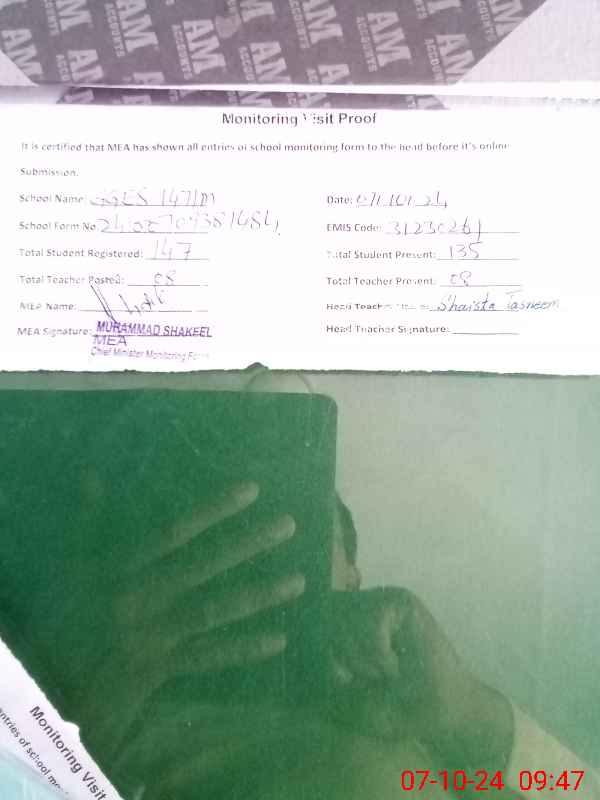 AM ACCOUNTS
Monitoring Visit Proof
It is certified that MEA has shown all entries of school monitoring form to the head before it's online
Submission.
School Name: GGES 147/M Date: 07/10/24
School Form No. EMIS Code:
Total Student Registered: 147 Total Student Present: 135
Total Teacher Posted: 08 Total Teacher Present: 08
MEA Name: Head Teacher Name: Shaista Tasneem
MEA Signature: MUHAMMAD SHAKEEL Head Teacher Signature:
MEA
Chief Minister Monitoring Force
Monitoring Visit
entries of school
07-10-24 09:47